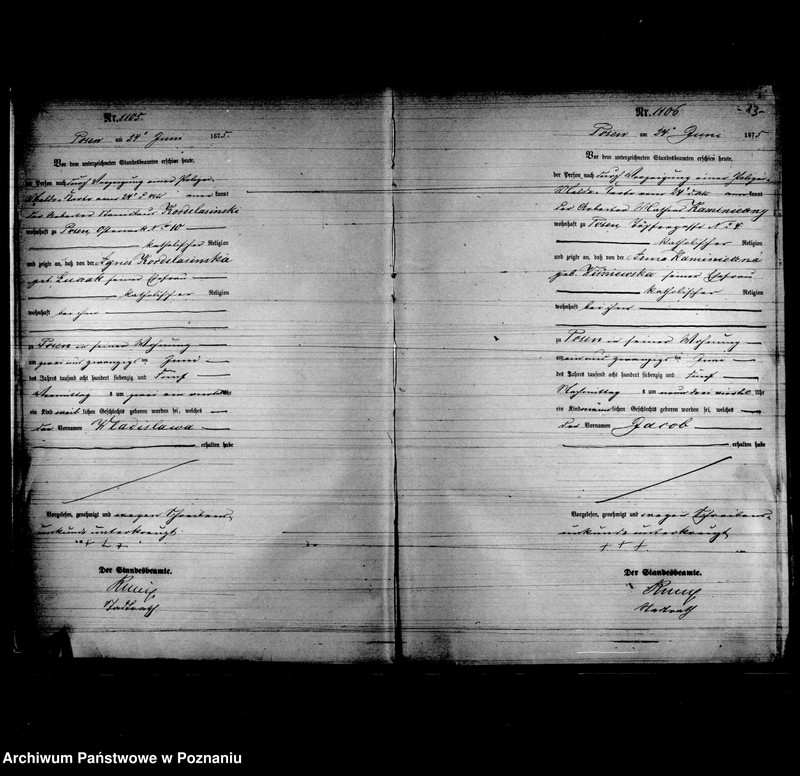 Nr. 1105.
Posen am 24t Juni 1875.
Vor dem unterzeichneten Standesbeamten erschien heute,
der Person nach durch Vorzeigung einer Polizei-
Melde-Karte vom 24t d. Mts. anerkannt
der Arbeiter Kordelasinski
wohnhaft zu Posen Ostrowek No 10
katholischer Religion
und zeigte an, daß von der Agnes Kordelasinska
geb. seiner Ehefrau
katholischer Religion
wohnhaft bei ihm
zu Posen in seiner Wohnung
am zwei und zwanzigsten Juni
des Jahres tausend acht hundert siebenzig und fünf
Vormittags um zwei ein viertel Uhr
ein Kind weiblichen Geschlechts geboren worden sei, welches
der Vornamen Wladislawa
erhalten habe
Vorgelesen, genehmigt und wegen Schreibens-
unkunde unterkreuzt
+ + +
Der Standesbeamte.
Stadtrath
-13-
Nr. 1106
Posen am 24t Juni 1875
Vor dem unterzeichneten Standesbeamten erschien heute,
der Person nach durch Vorzeigung einer Polizei-
Melde-Karte vom 24t d. Mts. anerkannt
der Arbeiter Kaminiczny
wohnhaft zu Posen No 4
katholischer Religion
und zeigte an, daß von der Anna Kaminiczna
geb. Wisniewska seiner Ehefrau
katholischer Religion
wohnhaft bei ihm
zu Posen in seiner Wohnung
am ein und zwanzigsten Juni
des Jahres tausend acht hundert siebenzig und fünf
Nachmittags um neun drei viertel Uhr
ein Kind männlichen Geschlechts geboren worden sei, welches
der Vornamen Jacob
erhalten habe
Vorgelesen, genehmigt und wegen Schreibens-
unkunde unterkreuzt
+ + +
Der Standesbeamte.
Stadtrath
Archiwum Państwowe w Poznaniu